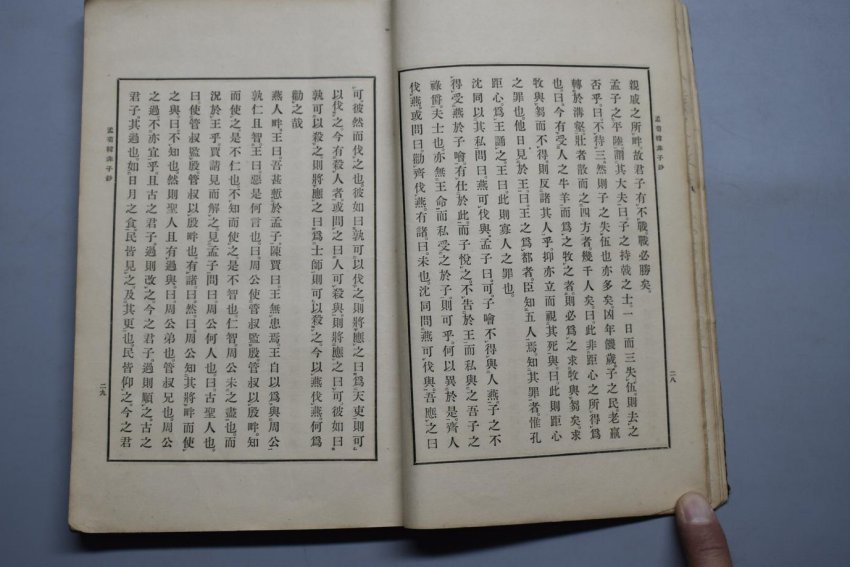 孟荀韓非子鈔
二八
親戚之所畔。故君子有不戰、戰必勝矣。
孟子之平陸、謂其大夫曰、子之持戟之士、一日而三失伍、則去之
否乎。曰、不待三。然則子之失伍也亦多矣。凶年饑歲、子之民、老羸
轉於溝壑、壯者散而之四方者、幾千人矣。曰、此非距心之所得爲
也。曰、今有受人之牛羊、而爲之牧之者、則必爲之求牧與芻矣。求
牧與芻而不得、則反諸其人乎、抑亦立而視其死與。曰、此則距心
之罪也。他日見於王曰、王之爲都者、臣知五人焉。知其罪者、惟孔
距心。爲王誦之。王曰、此則寡人之罪也。
沈同以其私問曰、燕可伐與。孟子曰、可。子噲不得與人燕、子之不
得受燕於子噲。有仕於此、而子悅之、不告於王、而私與之吾子之
祿爵、夫士也、亦無王命而私受之於子、則可乎。何以異於是。齊人
伐燕。或問曰、勸齊伐燕、有諸。曰、未也。沈同問燕可伐與、吾應之曰
孟荀韓非子鈔
二九
可。彼然而伐之也。彼如曰、孰可以伐之、則將應之曰、爲天吏則可
以伐之。今有殺人者、或問之曰、人可殺與、則將應之曰、可。彼如曰、
孰可以殺之、則將應之曰、爲士師則可以殺之。今以燕伐燕、何爲
勸之哉
燕人畔。王曰、吾甚慙於孟子。陳賈曰、王無患焉。王自以爲與周公
孰仁且智。王曰、惡是何言也。曰、周公使管叔監殷、管叔以殷畔。知
而使之、是不仁也。不知而使之、是不智也。仁智周公未之盡也。而
況於王乎。賈請見而解之。見孟子問曰、周公何人也。曰、古聖人也。
曰、使管叔監殷、管叔以殷畔也、有諸。曰、然。曰、周公知其將畔而使
之與。曰、不知也。然則聖人且有過與。曰、周公弟也。管叔兄也。周公
之過不亦宜乎。且古之君子、過則改之。今之君子、過則順之。古之
君子、其過也、如日月之食、民皆見之。及其更也、民皆仰之。今之君